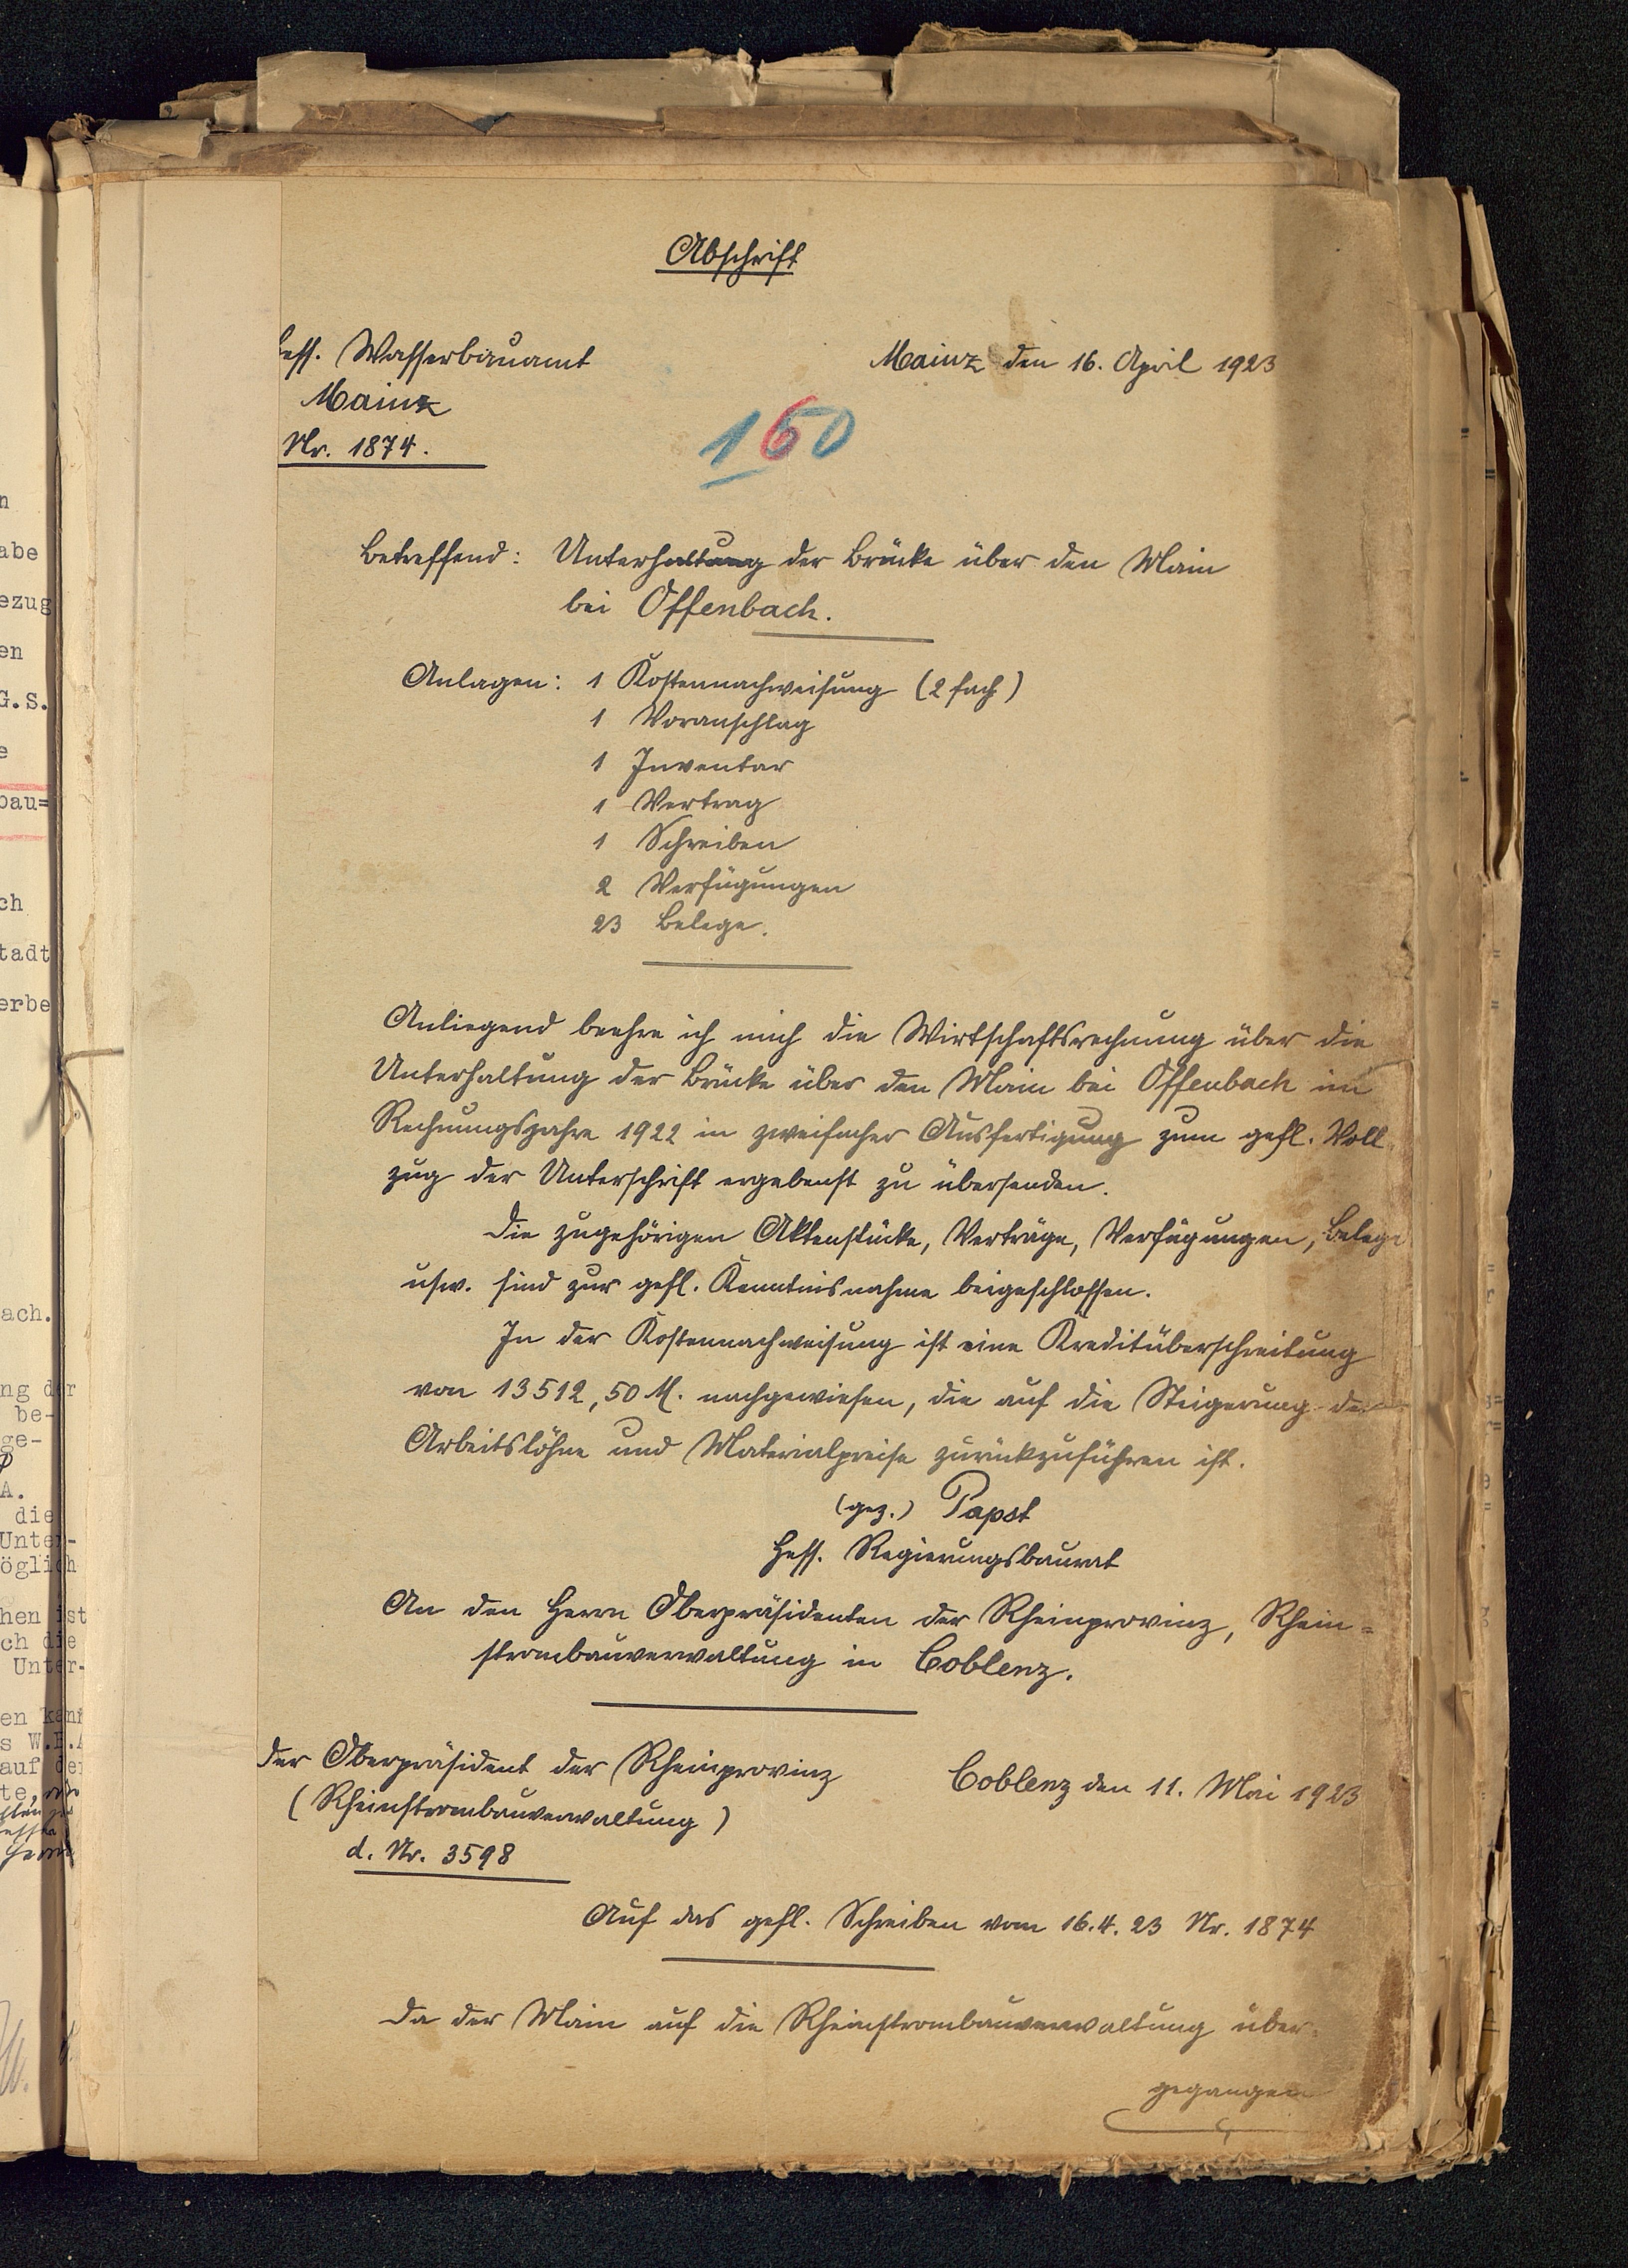 Abschrift
Hess. Wasserbauamt
Mainz
Nr. 1874.
Mainz den 16. April 1923
160
Betreffend: Unterhaltung der Brücke über den Main
bei Offenbach.
Anlagen: 1 Kostennachweisung (2 fach)
1 Voranschlag
1 Inventar
1 Vertrag
1 Schreiben
2 Verfügungen
23 Belege.
Anliegend beehre ich mich die Wirtschaftsrechnung über die
Unterhaltung der Brücke über den Main bei Offenbach im
Rechnungsjahre 1922 in zweifacher Ausfertigung zum gefl. Voll-
zug der Unterschrift ergebenst zu übersenden.
Die zugehörigen Aktenstücke, Verträge, Verfügungen, Belege
usw. sind zur gefl. Kenntnisnahme beigeschlossen.
In der Kostennachweisung ist eine Kreditüberschreitung
von 13512,50 M. nachgewiesen, die auf die Steigerung der
Arbeitslöhne und Materialpreise zurückzuführen ist.
(gez.) Papst
Hess. Regierungsbaurat
An den Herrn Oberpräsidenten der Rheinprovinz, Rhein=
strombauverwaltung in Coblenz.
Der Oberpräsident der Rheinprovinz
(Rheinstrombauverwaltung)
d. Nr. 3598
Coblenz den 11. Mai 1923
Auf das gefl. Schreiben vom 16.4.23 Nr. 1874
Da der Main auf die Rheinstrombauverwaltung über-
gegangen